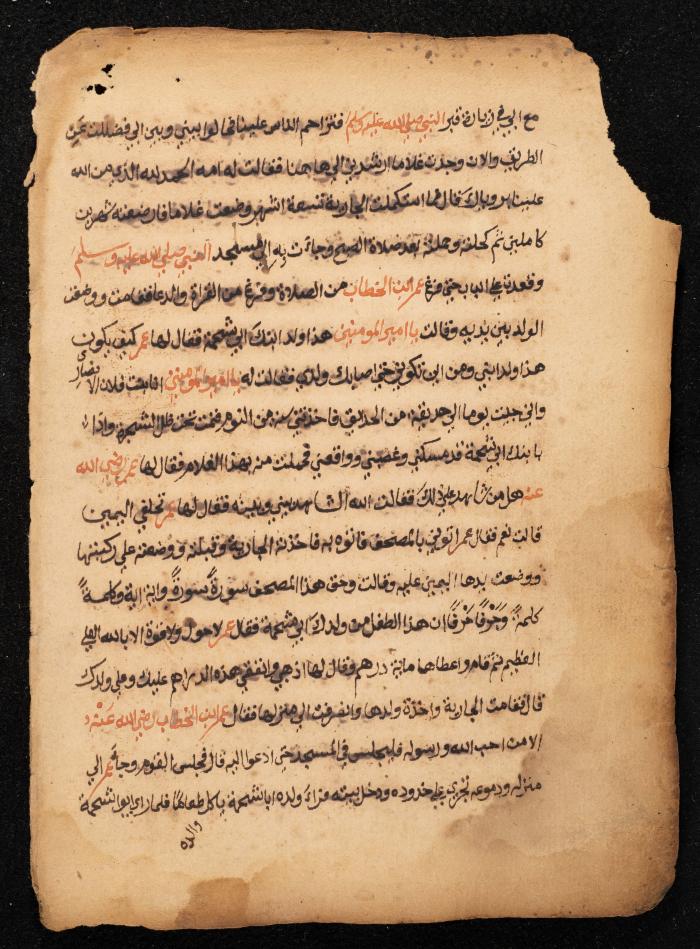 مع ابي في زيارة قبر النبي صلي الله عليه وسلم فتزاحم الناس علينا فحالوا بيني وبين ابي فضللت عن
الطريق والان وجدت غلاما ارشدني الي هاهنا فقالت له امه الحمد لله الذي من الله
علينا بك قال فما استكملت الجارية تسعة اشهر وضعت غلاما فارضعته شهرين
كاملين ثم كحلته وحملته بعد صلاة الصبح وجاءت به الي مسجد النبي صلي الله عليه وسلم
وقعدت علي الباب حتي فرغ عمر ابن الخطاب من الصلاة وفرغ من القراة والدعا فقامت ووضعت
الولد بين يديه وقالت يا امير المومنين هذا ولد ابنك ابي شحمة فقال لها عمر كيف يكون
هذا ولد ابني ومن اين تكوني حتي اصابك ولدي فقالت له يا امير المومنين انا بنت فلان الانصاري
واني جيت يوما الي حديقة من الحدائق فاخذتني سنة من النوم فنمت تحت ظل الشجرة واذا
بابنك ابي شحمة قد مسكني وغصبني وواقعني فحملت منه بهذا الغلام فقال لها عمر رضي الله
عنه هل من شاهد علي ذلك فقالت الله الشاهد بيني وبينه فقال لها عمر تحلفي اليمين
قالت نعم فقال عمر اتوني بالمصحف فاتوه به فاخذته الجارية وقبلته ووضعته علي ركبتها
ووضعت يدها اليمين عليه وقالت وحق هذا المصحف سورةً سورةً واية اية وكلمةً
كلمةً وحرفًا حرفًا ان هذا الطفل من ولدك ابي شحمة فقال عمر لا حول ولا قوة الا بالله العلي
العظيم ثم قام واعطاها ماية درهم وقال لها اذهبي وانفقي هذه الدراهم عليك وعلي ولدك
قال فقامت الجارية واخذة ولدها وانصرفت الي منزلها فقال عمر ابن الخطاب رضي الله عنه
الا من احب الله ورسوله فليجلس في المسجد حتي ادعوا اليه قال فجلس القوم وجا عمر الي
منزله ودموعه تجري علي خدوده ودخل بيته فراى ولده ابا شحمة ياكل طعامًا فلما راي ابوا شحمة
والده